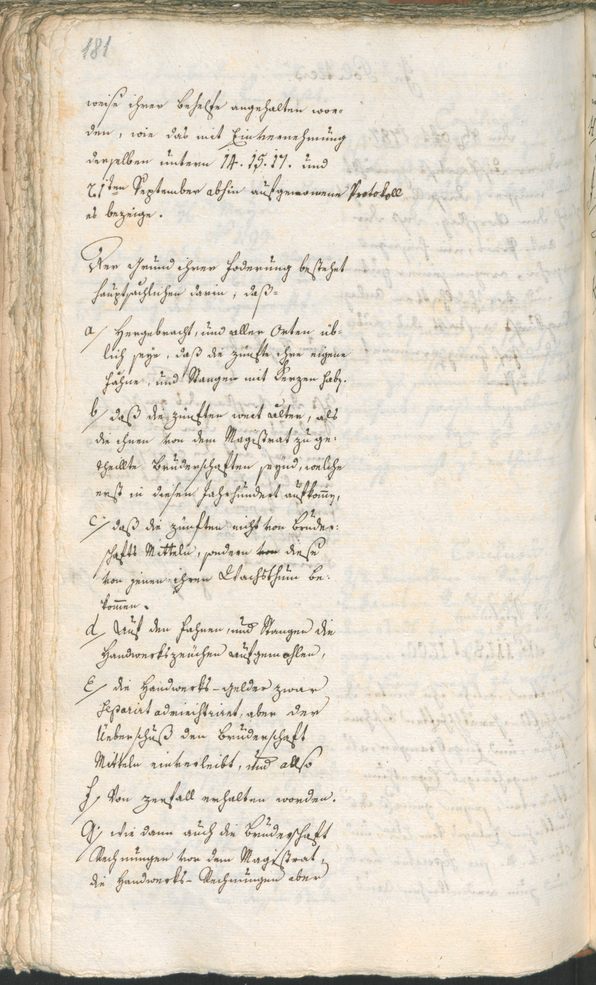 181
weise ihrer Behelfe angehalten wor-
den, wie das mit Einvernehmung
derselben untern 14. 15. 17. und
21ten September abhin aufgenomene Protokoll
es bezeige.
Der Grund ihrer Foderung bestehet
hauptsächlichen darin, daß-
a/ Hergebracht, und aller Orten üb-
lich seye, daß die zünfte ihre eigene
Fähne, und Stangen mit Kerzen hab.
b/ daß die zünften weit älter, als
die ihnen von dem Magistrat zu ge-
theillte Bruderschaften seynd, welche
erst in diesem Jahrhundert aufkom̄,
c/ daß die zünften nicht von Bruder-
schafts Mitteln, sondern von diese
von jenen ihren Wachsthum be-
kom̄en.
d/ Auf den Fahnen, und Stangen die
Handwerkszeichen aufgemahlen,
E/ die Handwerks-Gelder zwar
separirt adm̄inistriret, aber der
Ueberschuß den Bruderschaft
Mitteln einverleibt, und allso
f/ Von zerfall erhalten worden.
G/ wie dann auch die Bruderschaft
Rechnungen vor dem Magistrat,
die Handwerks-Rechnungen aber